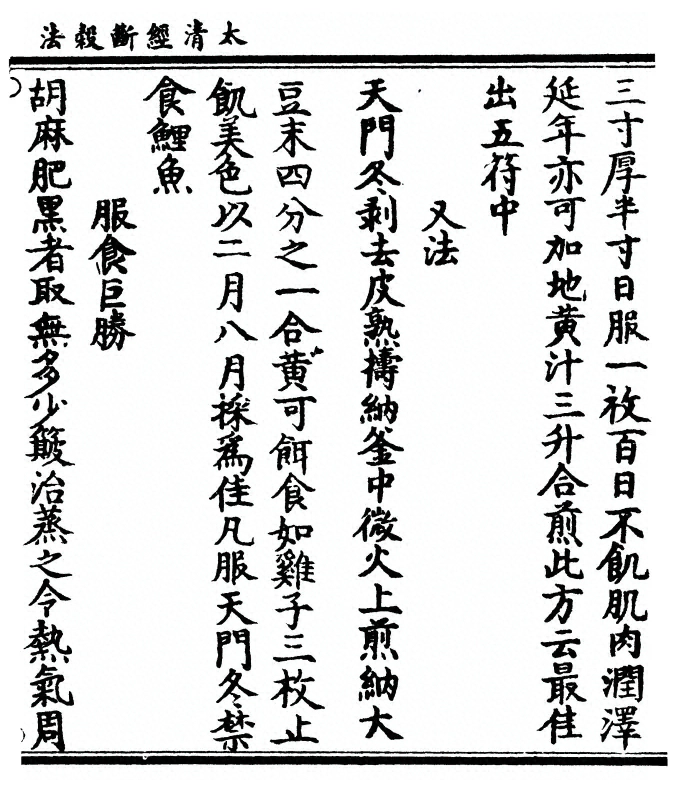 太清經斷穀法
三寸厚半寸日服一枚百日不飢肌肉潤澤
延年亦可加地黃汁三升合煎此方云最佳
出五符中
又法
天門冬剥去皮熟擣納釜中微火上煎納大
豆末四分之一合黃可餌食如雞子三枚止
飢美色以二月八月採為佳凡服天門冬禁
食鯉魚
服食巨勝
胡麻肥黑者取無多少簸治蒸之令熱氣周